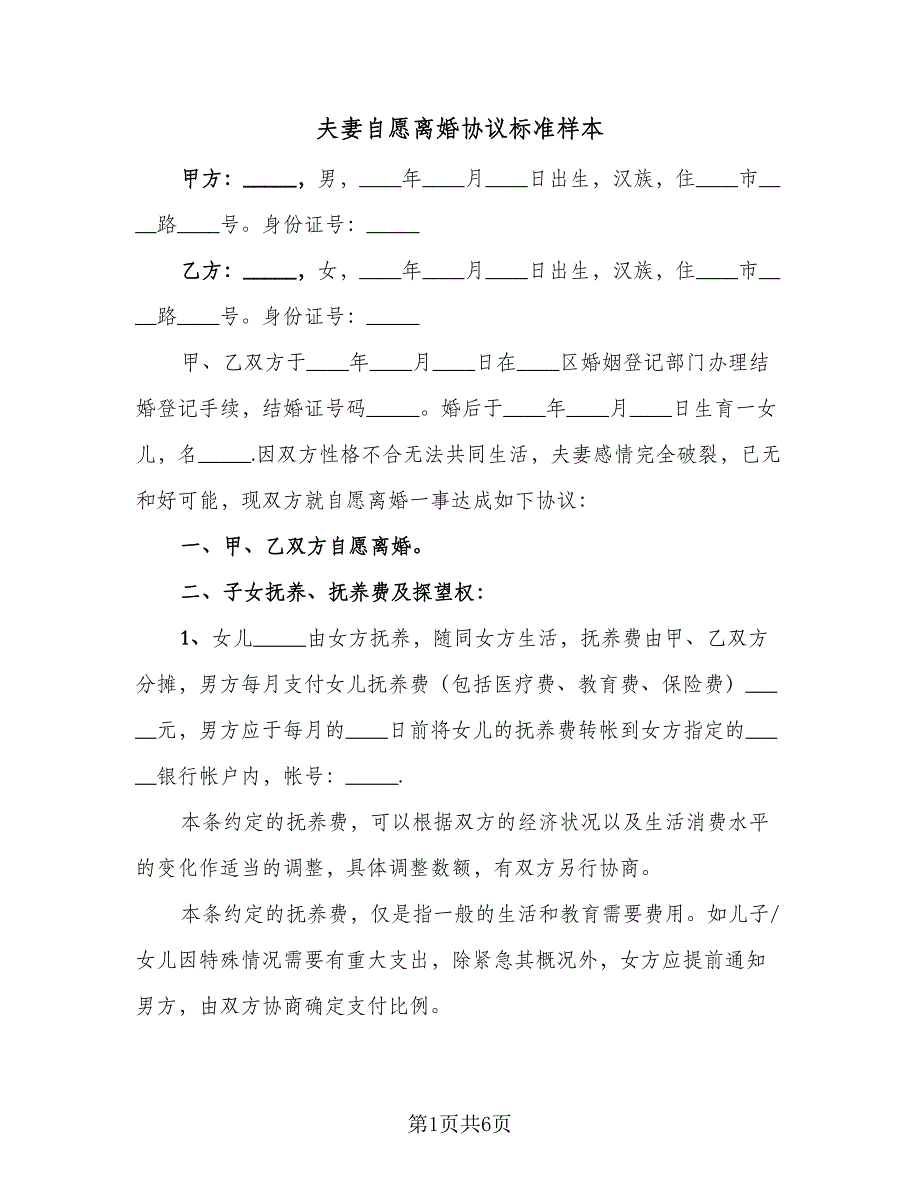 夫妻自愿离婚协议标准样本
甲方：_____，男，____年____月____日出生，汉族，住____市__
__路____号。身份证号：_____
乙方：_____，女，____年____月____日出生，汉族，住____市__
__路____号。身份证号：_____
甲、乙双方于____年____月____日在____区婚姻登记部门办理结
婚登记手续，结婚证号码_____。婚后于____年____月____日生育一女
儿，名_____.因双方性格不合无法共同生活，夫妻感情完全破裂，已无
和好可能，现双方就自愿离婚一事达成如下协议：
一、甲、乙双方自愿离婚。
二、子女抚养、抚养费及探望权：
1、女儿_____由女方抚养，随同女方生活，抚养费由甲、乙双方
分摊，男方每月支付女儿抚养费（包括医疗费、教育费、保险费）___
__元，男方应于每月的____日前将女儿的抚养费转帐到女方指定的___
__银行帐户内，帐号：_____.
本条约定的抚养费，可以根据双方的经济状况以及生活消费水平
的变化作适当的调整，具体调整数额，有双方另行协商。
本条约定的抚养费，仅是指一般的生活和教育需要费用。如儿子/
女儿因特殊情况需要有重大支出，除紧急其概况外，女方应提前通知
男方，由双方协商确定支付比例。
第1页共6页